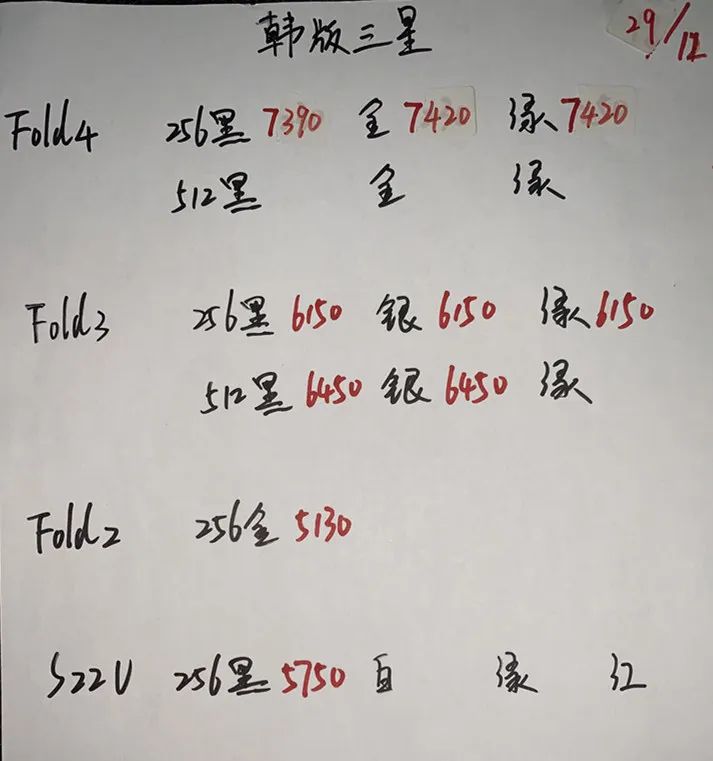 韩版三星 29/12
Fold4 256黑 7390 金 7420 绿 7420
512黑 金 绿
Fold3 256黑 6150 银 6150 绿 6150
512黑 6450 银 6450 绿
Fold2 256金 5130
S22U 256黑 5750 白 绿 红